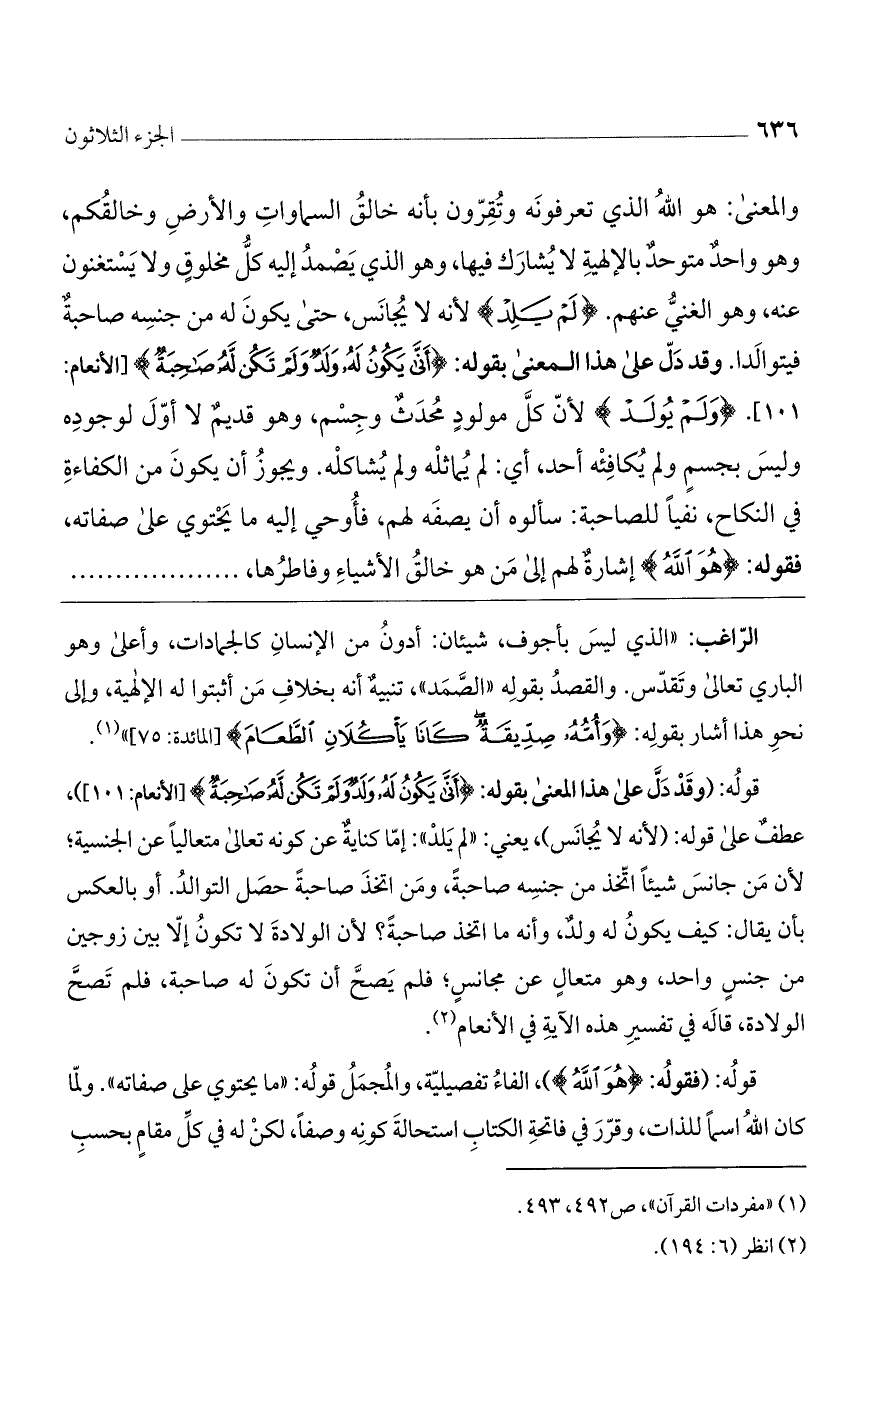 ٦٣٦ ــــــــــــــــــــــــــــــــ الجزء الثلاثون
والمعنىٰ: هو اللهُ الذي تعرفونَه وتُقِرّون بأنه خالقُ السماواتِ والأرضِ وخالقُكم،
وهو واحدٌ متوحدٌ بالإلهيةِ لا يُشارَك فيها، وهو الذي يَصْمدُ إليه كلُّ مخلوقٍ ولا يَسْتغنون
عنه، وهو الغنيُّ عنهم. ﴿لَمْ يَلِدْ﴾ لأنه لا يُجانَس، حتىٰ يكونَ له من جنسِه صاحبةٌ
فيتوالَدا. وقد دَلّ علىٰ هذا المعنىٰ بقوله: ﴿أَنَّىٰ يَكُونُ لَهُۥ وَلَدٌ وَلَمْ تَكُن لَّهُۥ صَٰحِبَةٌ﴾ [الأنعام:
١٠١]. ﴿وَلَمْ يُولَدْ﴾ لأنّ كلَّ مولودٍ مُحدَثٌ وجِسْم، وهو قديمٌ لا أوّلَ لوجودِه
وليسَ بجسمٍ ولم يُكافِئْه أحد، أي: لم يُماثلْه ولم يُشاكلْه. ويجوزُ أن يكونَ من الكفاءةِ
في النكاح، نفياً للصاحبة: سألوه أن يصفَه لهم، فأُوحي إليه ما يَحْتوي علىٰ صفاته،
فقوله: ﴿هُوَ ٱللَّهُ﴾ إشارةٌ لهم إلىٰ مَن هو خالقُ الأشياءِ وفاطرُها، ...................
الرّاغب: «الذي ليسَ بأجوف، شيئان: أدونُ من الإنسانِ كالجمادات، وأعلىٰ وهو
الباري تعالىٰ وتَقدّس. والقصدُ بقولِه «الصَّمَد»، تنبيهٌ أنه بخلافِ مَن أثبتوا له الإلهية، وإلى
نحوِ هذا أشار بقولِه: ﴿وَأُمُّهُۥ صِدِّيقَةٌ ۖ كَانَا يَأْكُلَانِ ٱلطَّعَامَ﴾ [المائدة: ٧٥]»(١).
قولُه: (وقَدْ دَلَّ علىٰ هذا المعنىٰ بقوله: ﴿أَنَّىٰ يَكُونُ لَهُۥ وَلَدٌ وَلَمْ تَكُن لَّهُۥ صَٰحِبَةٌ﴾ [الأنعام: ١٠١])،
عطفٌ علىٰ قوله: (لأنه لا يُجانَس)، يعني: «لم يَلدْ»: إمّا كنايةٌ عن كونه تعالىٰ متعالياً عن الجنسية؛
لأن مَن جانسَ شيئاً اتّخذ من جنسِه صاحبةً، ومَن اتخذَ صاحبةً حصَل التوالدُ. أو بالعكس
بأن يقال: كيف يكونُ له ولدٌ، وأنه ما اتخذ صاحبةً؟ لأن الولادةَ لا تكونُ إلّا بين زوجين
من جنسٍ واحد، وهو متعالٍ عن مجانسٍ؛ فلم يَصحَّ أن تكونَ له صاحبة، فلم تَصحَّ
الولادة، قالَه في تفسيرِ هذه الآيةِ في الأنعام(٢).
قولُه: (فقولُه: ﴿هُوَ ٱللَّهُ﴾)، الفاءُ تفصيليّة، والمُجمَلُ قولُه: «ما يحتوي على صفاته». ولمّا
كان اللهُ اسماً للذات، وقرّرَ في فاتحةِ الكتابِ استحالةَ كونِه وصفاً، لكنْ له في كلِّ مقامٍ بحسبِ
(١) «مفردات القرآن»، ص٤٩٢، ٤٩٣.
(٢) انظر (٦: ١٩٤).